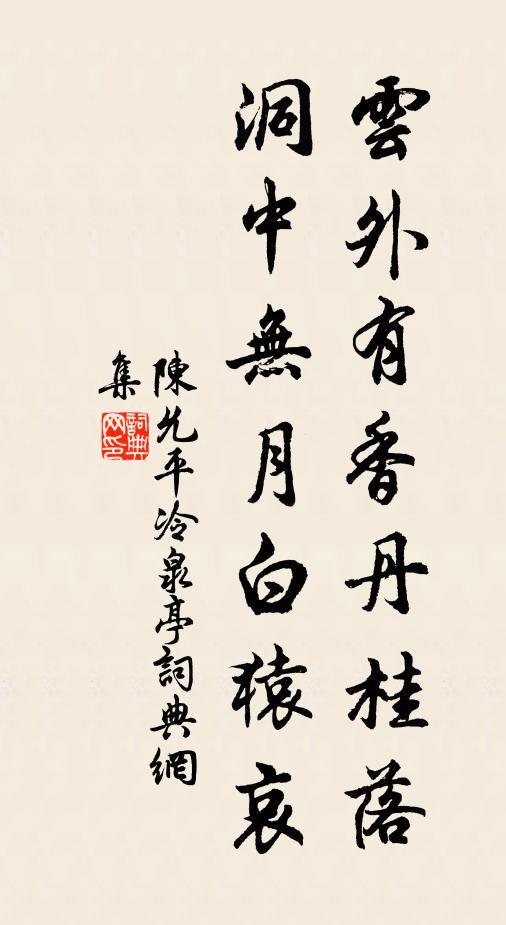 雲外有香丹桂落
洞中無月白猿哀
陳允平冷泉亭詞典網
集
詞典
网印